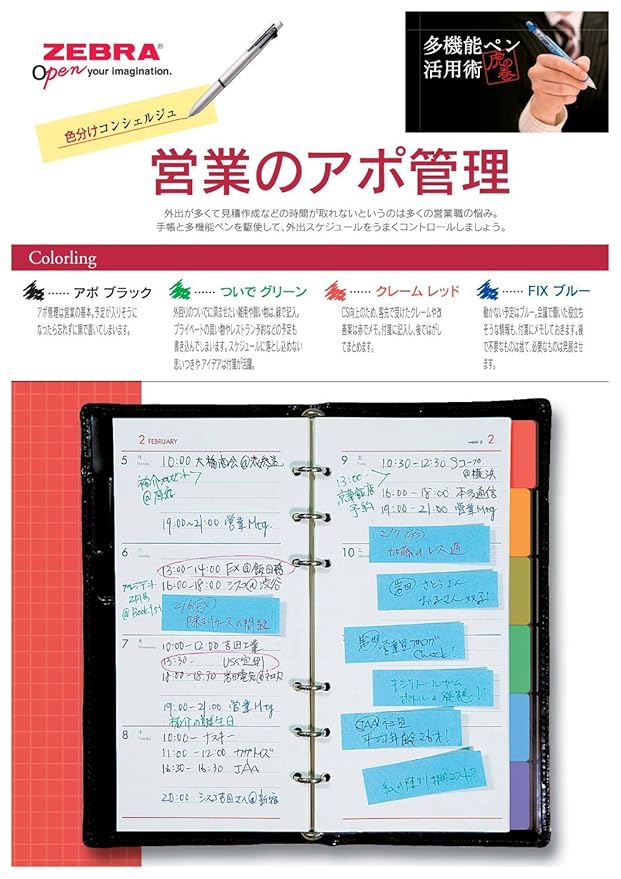 ZEBRA®
Open your imagination.
色分けコンシェルジュ
多機能ペン
活用術
虎の巻
営業のアポ管理
外出が多くて見積作成などの時間が取れないというのは多くの営業職の悩み。
手帳と多機能ペンを駆使して、外出スケジュールをうまくコントロールしましょう。
Colorling
…… アポ ブラック
アポ管理は営業の基本。予定が入りそうに
なったら忘れずに黒で書いてしまいます。
…… ついで グリーン
外回りのついでに済ませたい雑用や買い物は、緑で記入。
プライベートの買い物やレストラン予約などの予定も
書き込んでしまいます。スケジュールに落とし込めない
思いつきや アイデアは付箋が活躍。
…… クレーム レッド
CS向上のため、客先で受けたクレームや改
善案は赤でメモ。付箋に記入し、後ではがし
てまとめます。
…… FIX ブルー
動かない予定はブルー。会議で聞いた役立ち
そうな情報も、付箋にメモしておきます。後
で不要なものは捨て、必要なものは発展させ
ます。
2 FEBRUARY
5 月 10:00 大橋商会@表参道
Monday
19:00~21:00 営業Mtg.
6
13:00-14:00 FX@飯田橋
16:00-18:00 シスコ@渋谷
@Book1st
2/6(火)
7 水 10:00-12:00 吉田工業
Wednesday
13:30- USS定例
19:00-21:00 営業Mtg
8 10:00-
11:00-12:00
16:30-16:30 JAA
20:00
week 6 2
9 10:30-12:30
@横浜
13:00
予約
16:00-18:00 本多通信
19:00-21:00 営業Mtg
10
2/7(水)
加藤の
岩田 さとうさん
check!
キシリトールガム
ボトルの発想!!
JAA
平均年齢26才!